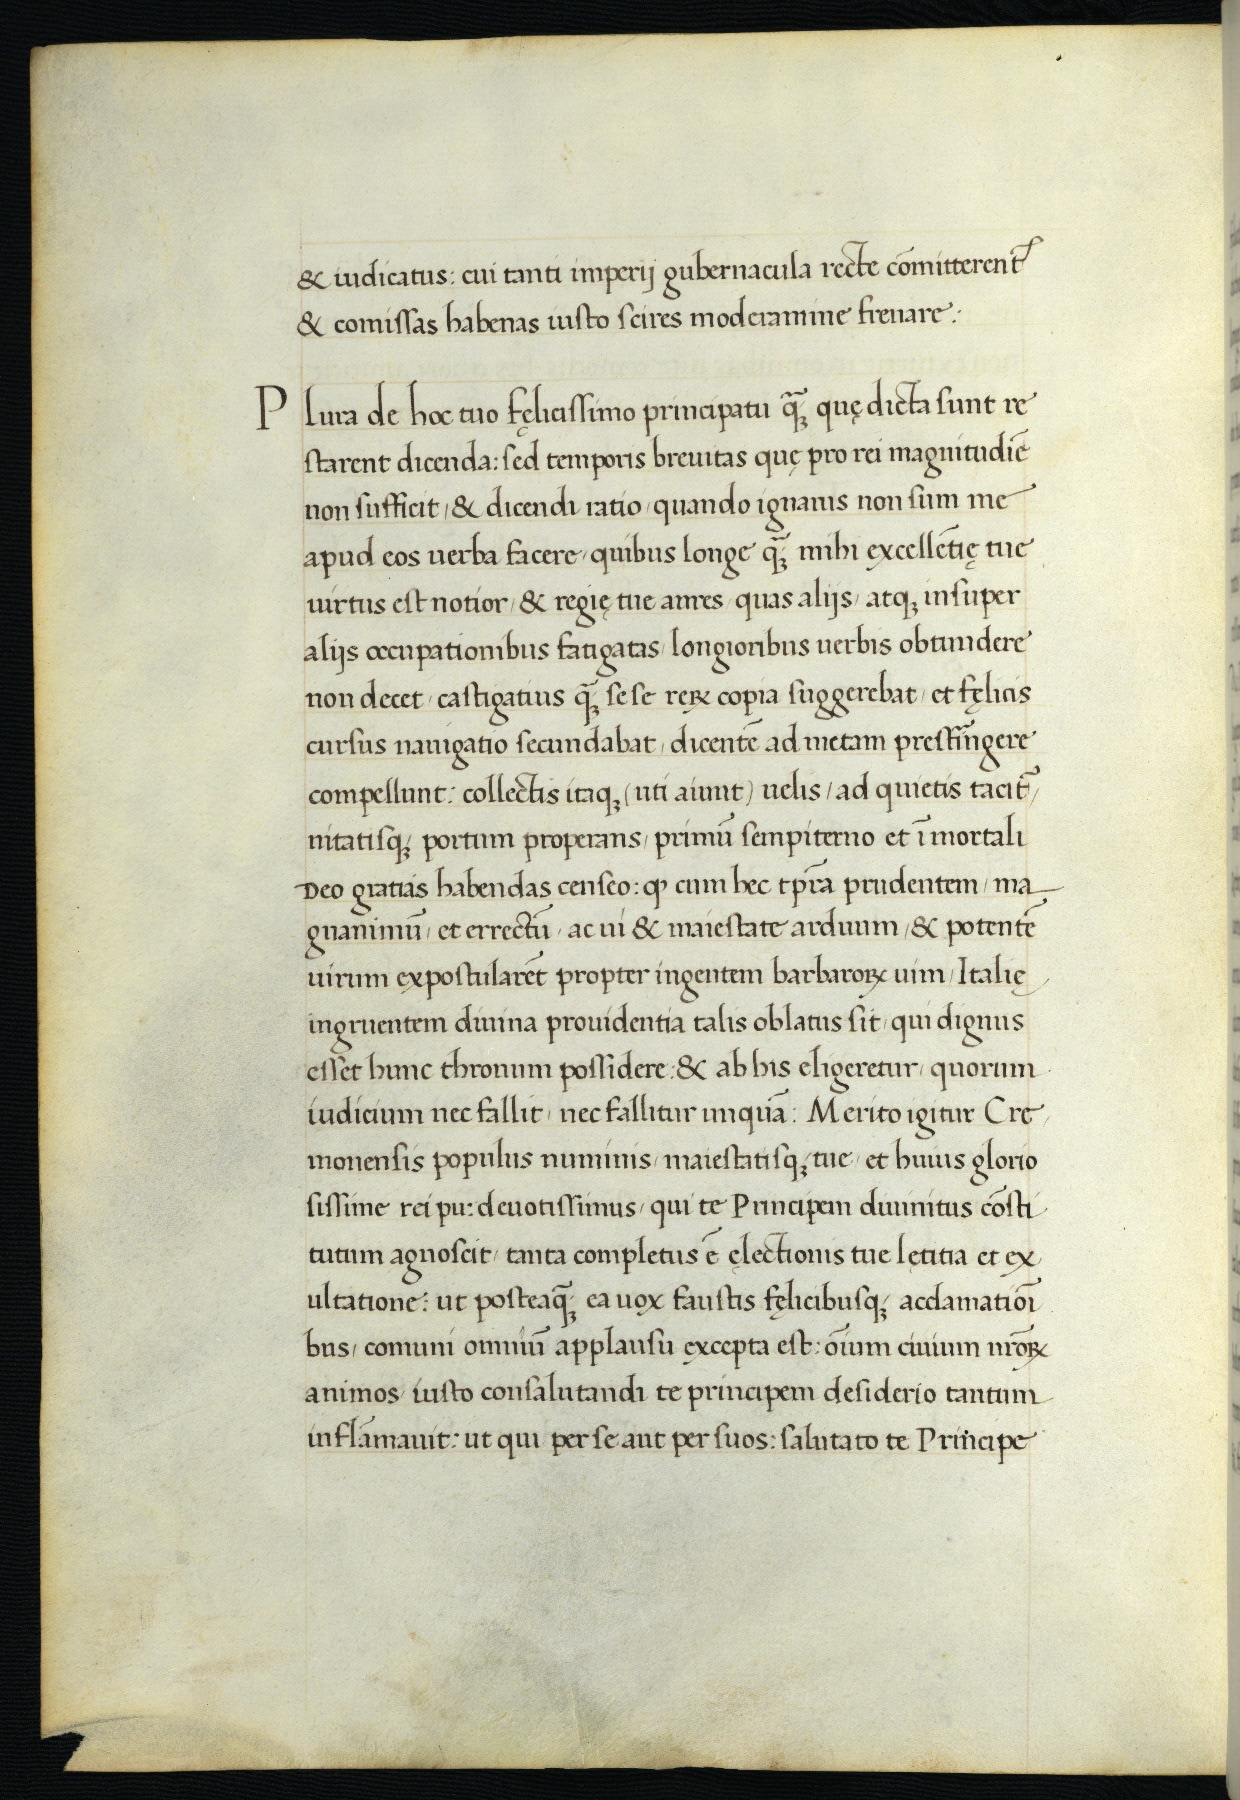 & iudicatus: cui tanti imperij gubernacula recte cōmitterent᷑
& comissas habenas iusto scires moderamine frenare:·
Plura de hoc tuo fęlicissimo principatu q̄ꝫ quę dicta sunt re
starent dicenda: sed temporis breuitas quę pro rei magnitudiē
non sufficit, & dicendi ratio, quando ignarus non sum me
apud eos uerba facere, quibus longe q̄ꝫ mihi excellētię tue
uirtus est notior, & regię tue aures, quas alijs, atqꝫ insuper
alijs occupationibus fatigatas, longioribus uerbis obtundere
non decet, castigatius q̄ꝫ sese reꝝ copia suggerebat, et fęlicis
cursus nauigatio secundabat, dicentē ad metam prestrīngere
compellunt: collectis itaqꝫ (uti aiunt) uelis, ad quietis tacit᷑,
nitatisqꝫ portum properans, primū sempiterno et īmortali
Deo gratias habendas censeo: ꝙ cum hec tp̄ra prudentem, ma
gnanimū, et errectū, ac ui & maiestate arduum, & potentē
uirum expostularēt propter ingentem barbaroꝝ uim, Italię
ingruentem diuina prouidentia talis oblatus sit, qui dignus
esset hunc thronum possidere: & ab his eligeretur, quorum
iudicium nec fallit, nec fallitur unquā: Merito igitur Cre,
monensis populus numinis, maiestatisqꝫ tue, et huius glorio
sissime rei pu: deuotissimus, qui te Principem diuinitus cōsti
tutum agnoscit, tanta completus ē ęlectionis tue lętitia et ex
ultatione: ut posteaq̄ꝫ ea uox faustis fęlicibusqꝫ acclamatioī
bus, comuni omniū applausu excepta est: oīum ciuium nr̄oꝝ
animos, iusto consalutandi te principem desiderio tantum
inflāmauit: ut qui per se aut per suos: salutato te Principe